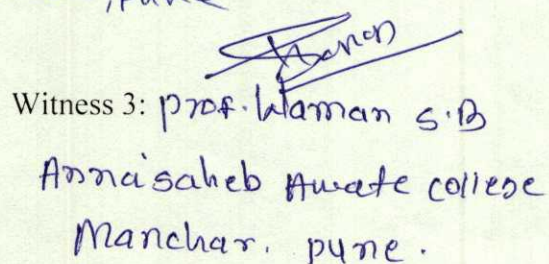 Witness 3: Prof. Waman S.B
Annasaheb Awate college
Manchar. pune.